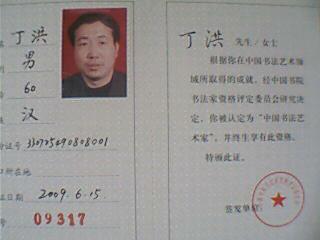 丁洪
男
60
汉
2009.6.15
09317
丁洪 先生／女士
根据你在中国书法艺术领
域所取得的成就，经中国书院
书法家资格评定委员会研究决
定，你被认定为“中国书法艺术
家”，并终生享有此资格。
特颁此证。
签发单位